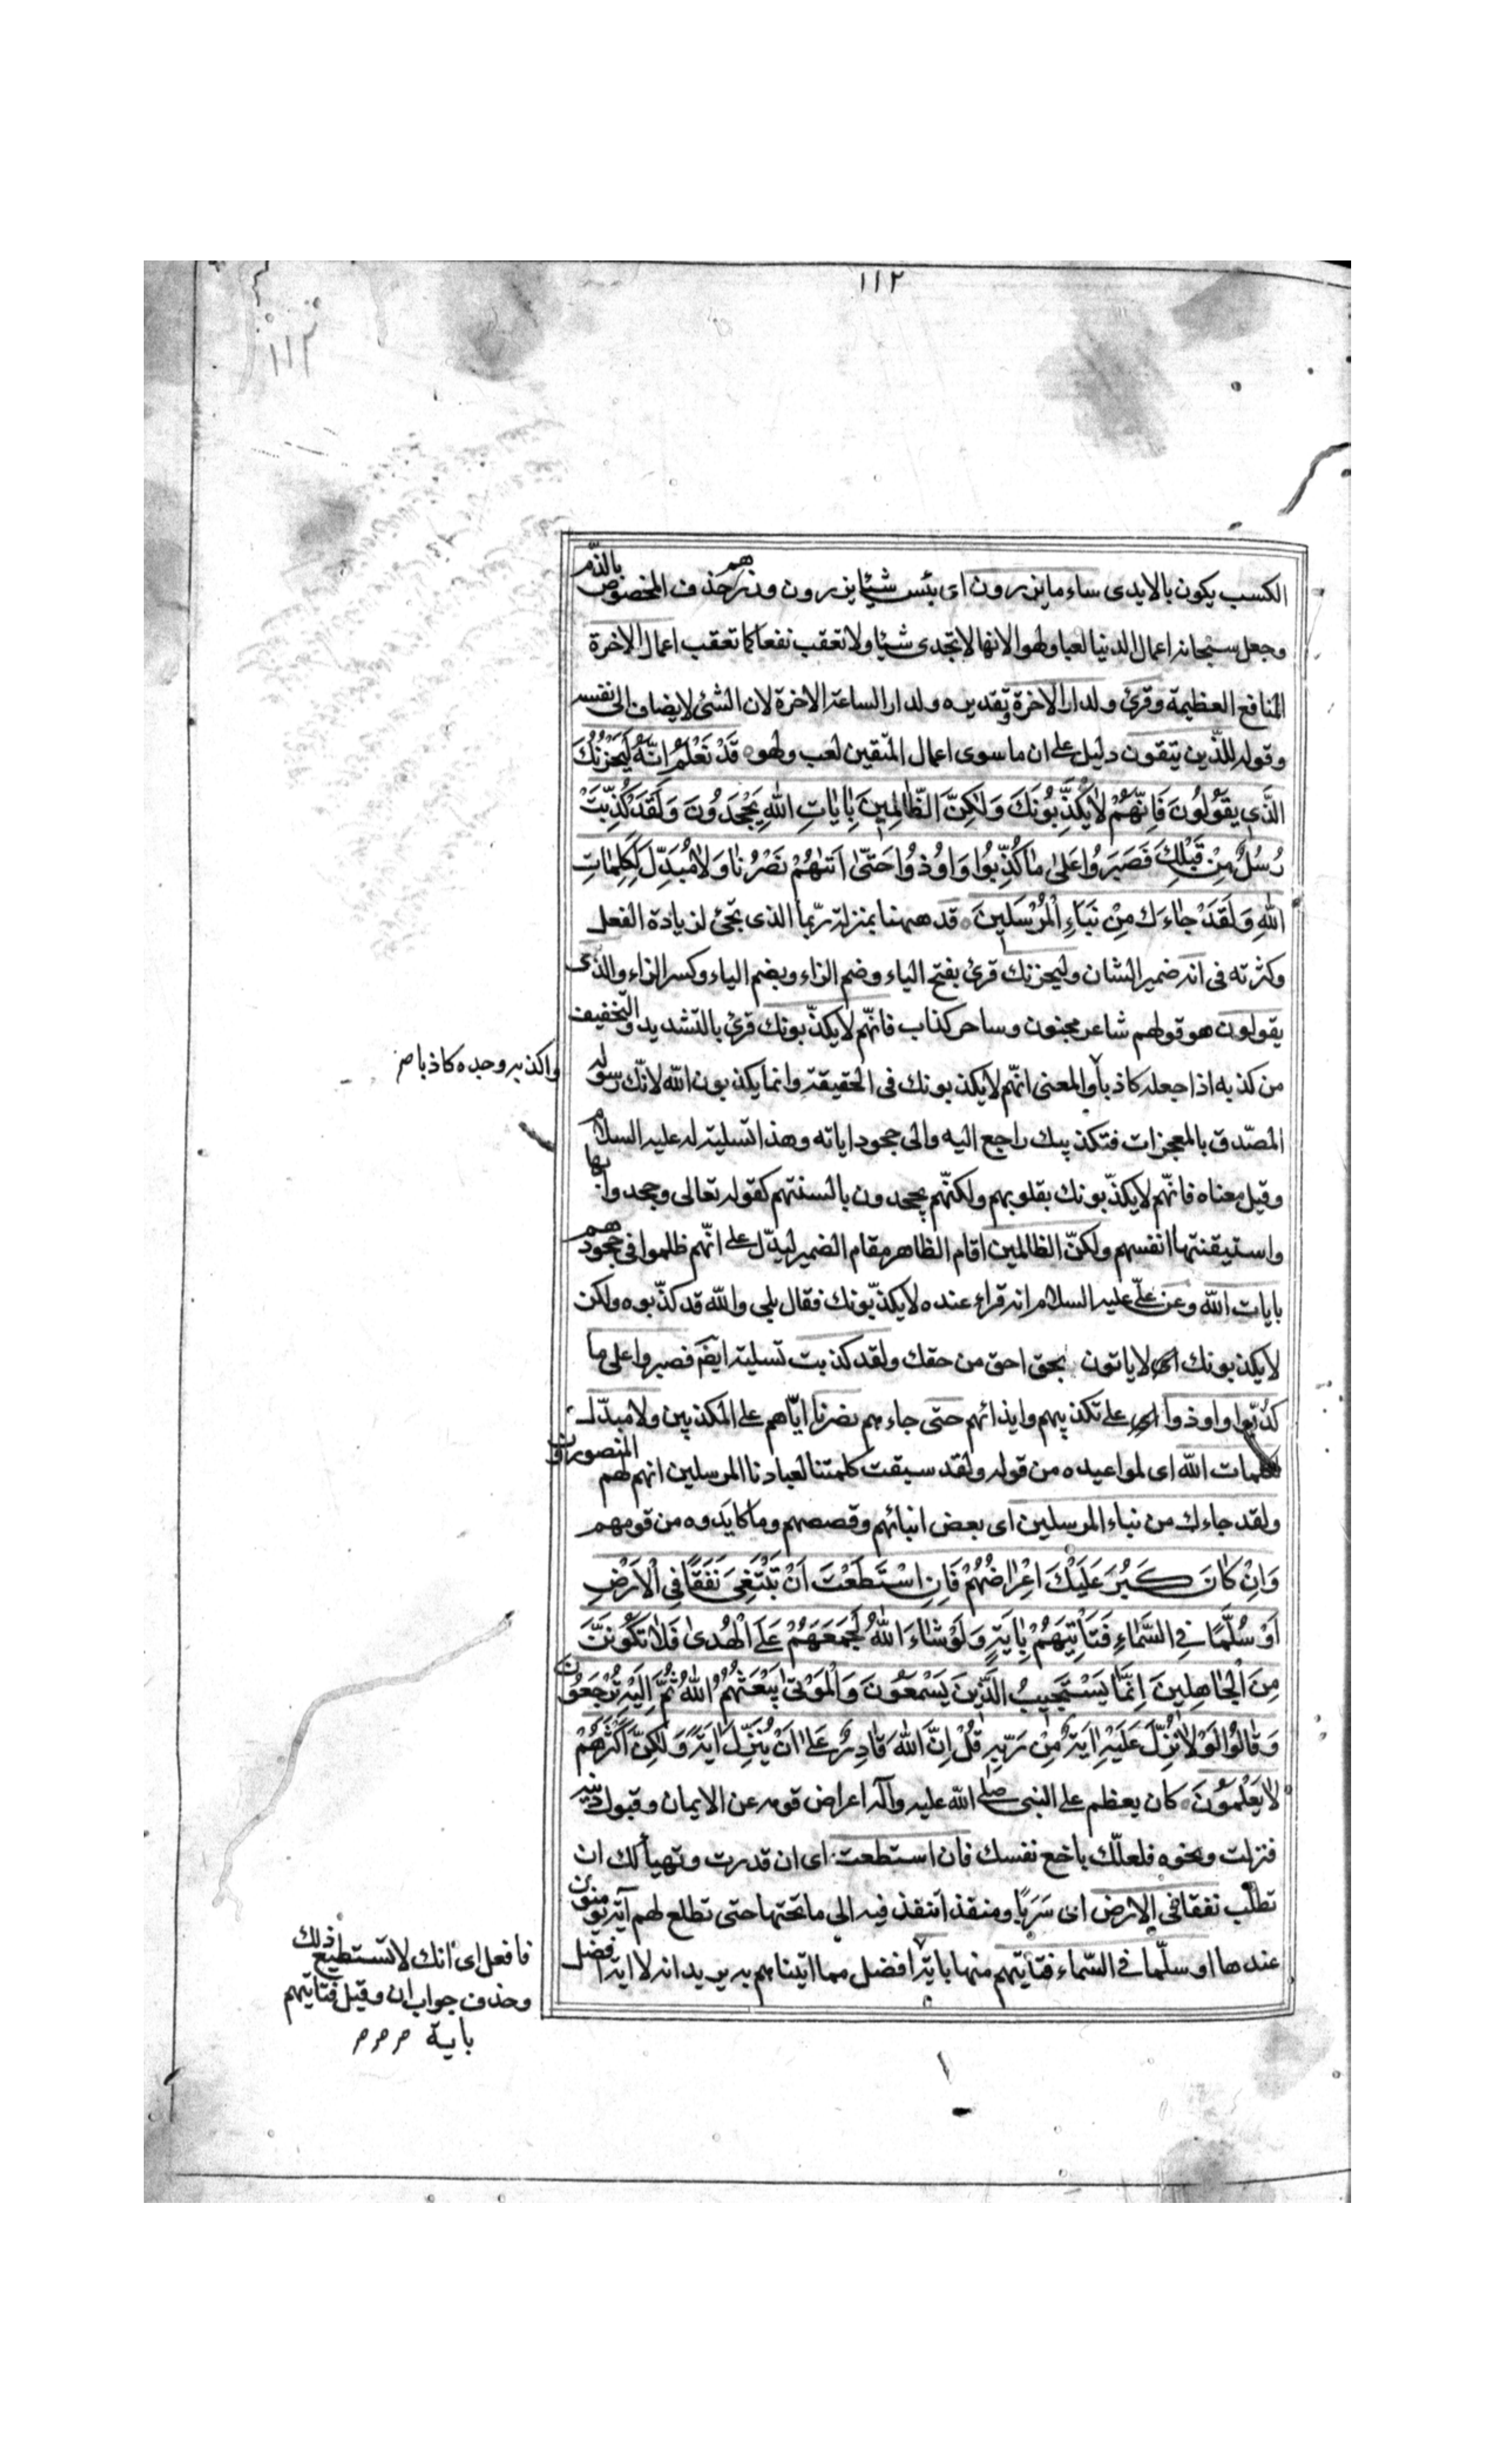 ١١٢
١١٢
الكسب يكون بالايدى ساء ما يزرون اى بئس شيئا يزرون وزرهم حذف المخصوص بالذّم
وجعل سبحانه اعمال الدنيا لعبا ولهوا لانها لا تجدى شيئا ولا تعقب نفعا كما تعقب اعمال الاخرة
المنافع العظيمة وقرئ ولدار الاخرة وتقديره ولدار الساعة الاخرة لان الشئ لا يضاف الى نفسه
وقوله للذين يتقون دليل على ان ما سوى اعمال المتّقين لعب ولهو قَدْ نَعْلَمُ اِنَّهُ لَيَحْزُنُكَ
الَّذى يَقُولُونَ فَاِنَّهُمْ لا يُكَذِّبُونَكَ وَلكِنَّ الظّالِمينَ بِاياتِ اللهِ يَجْحَدُونَ وَلَقَدْ كُذِّبَتْ
رُسُلٌ مِنْ قَبْلِكَ فَصَبَرُوا عَلى ما كُذِّبُوا وَاوُذوُا حَتّى اَتيهُمْ نَصْرُنا وَلا مُبَدِّلَ لِكَلِماتِ
اللهِ وَلَقَدْ جاءَكَ مِنْ نَبَاءِ الْمُرْسَلينَ قد ههنا بمنزلة ربّما الذى تجئ لزيادة الفعل
وكثرته فى انه ضمير الشان وليحزنك قرئ بفتح الياء وضم الزاء وبضم الياء وكسر الزاء والذى
يقولون هو قولهم شاعر مجنون وساحر كذاب فانّهم لا يكذّبونك قرئ بالتشديد والتخفيف
من كذبه اذا جعله كاذبا والمعنى انّهم لا يكذبونك فى الحقيقة وانما يكذبون الله لانّك رسوله
واكذبه وجده كاذبا صح
المصّدق بالمعجزات فتكذيبك راجع اليه والى جحود اياته وهذا تسلية له عليه السلام
وقيل معناه فانّهم لا يكذّبونك بقلوبهم ولكنّهم يجحدون بالسنتهم كقوله تعالى وجحدوا بها
واستيقنتها انفسهم ولكنّ الظالمين اقام الظاهر مقام الضمير ليدّل على انّهم ظلموا فى جحودهم
بايات الله وعن علّى عليه السلام انه قراء عنده لا يكذّبونك فقال بلى والله قد كذّبوه ولكن
لا يكذبونك اى لا ياتون بحق احق من حقك ولقد كذبت تسلية ايضم فصبروا على ما
كذّبوا واوذوا اى على تكذيبهم وايذائهم حتى جاءهم نصرنا ايّاهم على المكذبين ولا مبدّل
لكلمات الله اى لمواعيده من قوله ولقد سبقت كلمتنا لعبادنا المرسلين انهم لهم المنصورون
ولقد جاءك من نباء المرسلين اى بعض انبائهم وقصصهم وما كايدوه من قومهم
وَاِنْ كانَ كَبُرَ عَلَيْكَ اِعْراضُهُمْ فَاِنِ اسْتَطَعْتَ اَنْ تَبْتَغِىَ نَفَقًا فِى الْاَرْضِ
اَوْ سُلَّمًا فِى السَّماءِ فَتَاْتِيَهُمْ بِايَةٍ وَلَوْ شاءَ اللهُ لَجَمَعَهُمْ عَلَى الْهُدى فَلا تَكُونَنَّ
مِنَ الْجاهِلينَ اِنَّما يَسْتَجيبُ الَّذينَ يَسْمَعُونَ وَالْمَوْتى يَبْعَثُهُمُ اللهُ ثُمَّ اِلَيْهِ تُرْجَعُونَ
وَقالُوا لَوْلا نُزِّلَ عَلَيْهِ ايَةٌ مِنْ رَبِّهِ قُلْ اِنَّ اللهَ قادِرٌ عَلى اَنْ يُنَزِّلَ ايَةً وَلكِنَّ اَكْثَرَهُمْ
لا يَعْلَمُونَ كان يعظم على النبى صلى الله عليه وآله اعراض قومه عن الايمان وقبول دينه
فنزلت ونحوه فلعلّك باخع نفسك فان استطعت اى ان قدرت وتهيأ لك ان
تطلب نفقا فى الارض اى سَرَبًا ومنفذا تنفذ فيه الى ما تحتها حتى تطلع لهم آية يؤمنون
عندها او سلّما فى السّماء فتأتيهم منها باية افضل مما اتيناهم به يريد انه لا اية افضل
فافعل اى انك لا تستطيع ذلك
وحذف جواب ان وقيل فتاتيهم
باية